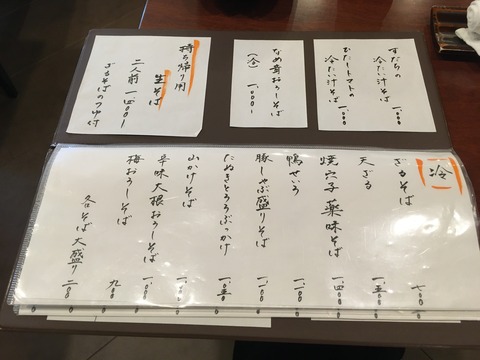 すだちの
冷たい汁そば
一、〇〇〇
ひたしトマトの
冷たい汁そば
一、〇〇〇
なめ茸おろしそば
(冷)
一、〇〇〇
持ち帰り用
生そば
二人前 一四〇〇
ざるそばのつゆ付
冷
ざるそば 七〇〇
天ざる
焼穴子薬味そば 一、四〇〇
鴨せいろ 一、一〇〇
豚しゃぶ盛りそば 一、一〇〇
たぬきとろろぶっかけ 一、〇五〇
山かけそば 一、〇〇〇
辛味大根おろしそば 一、〇〇〇
梅おろしそば 九〇〇
各そば 大盛り 二〇〇